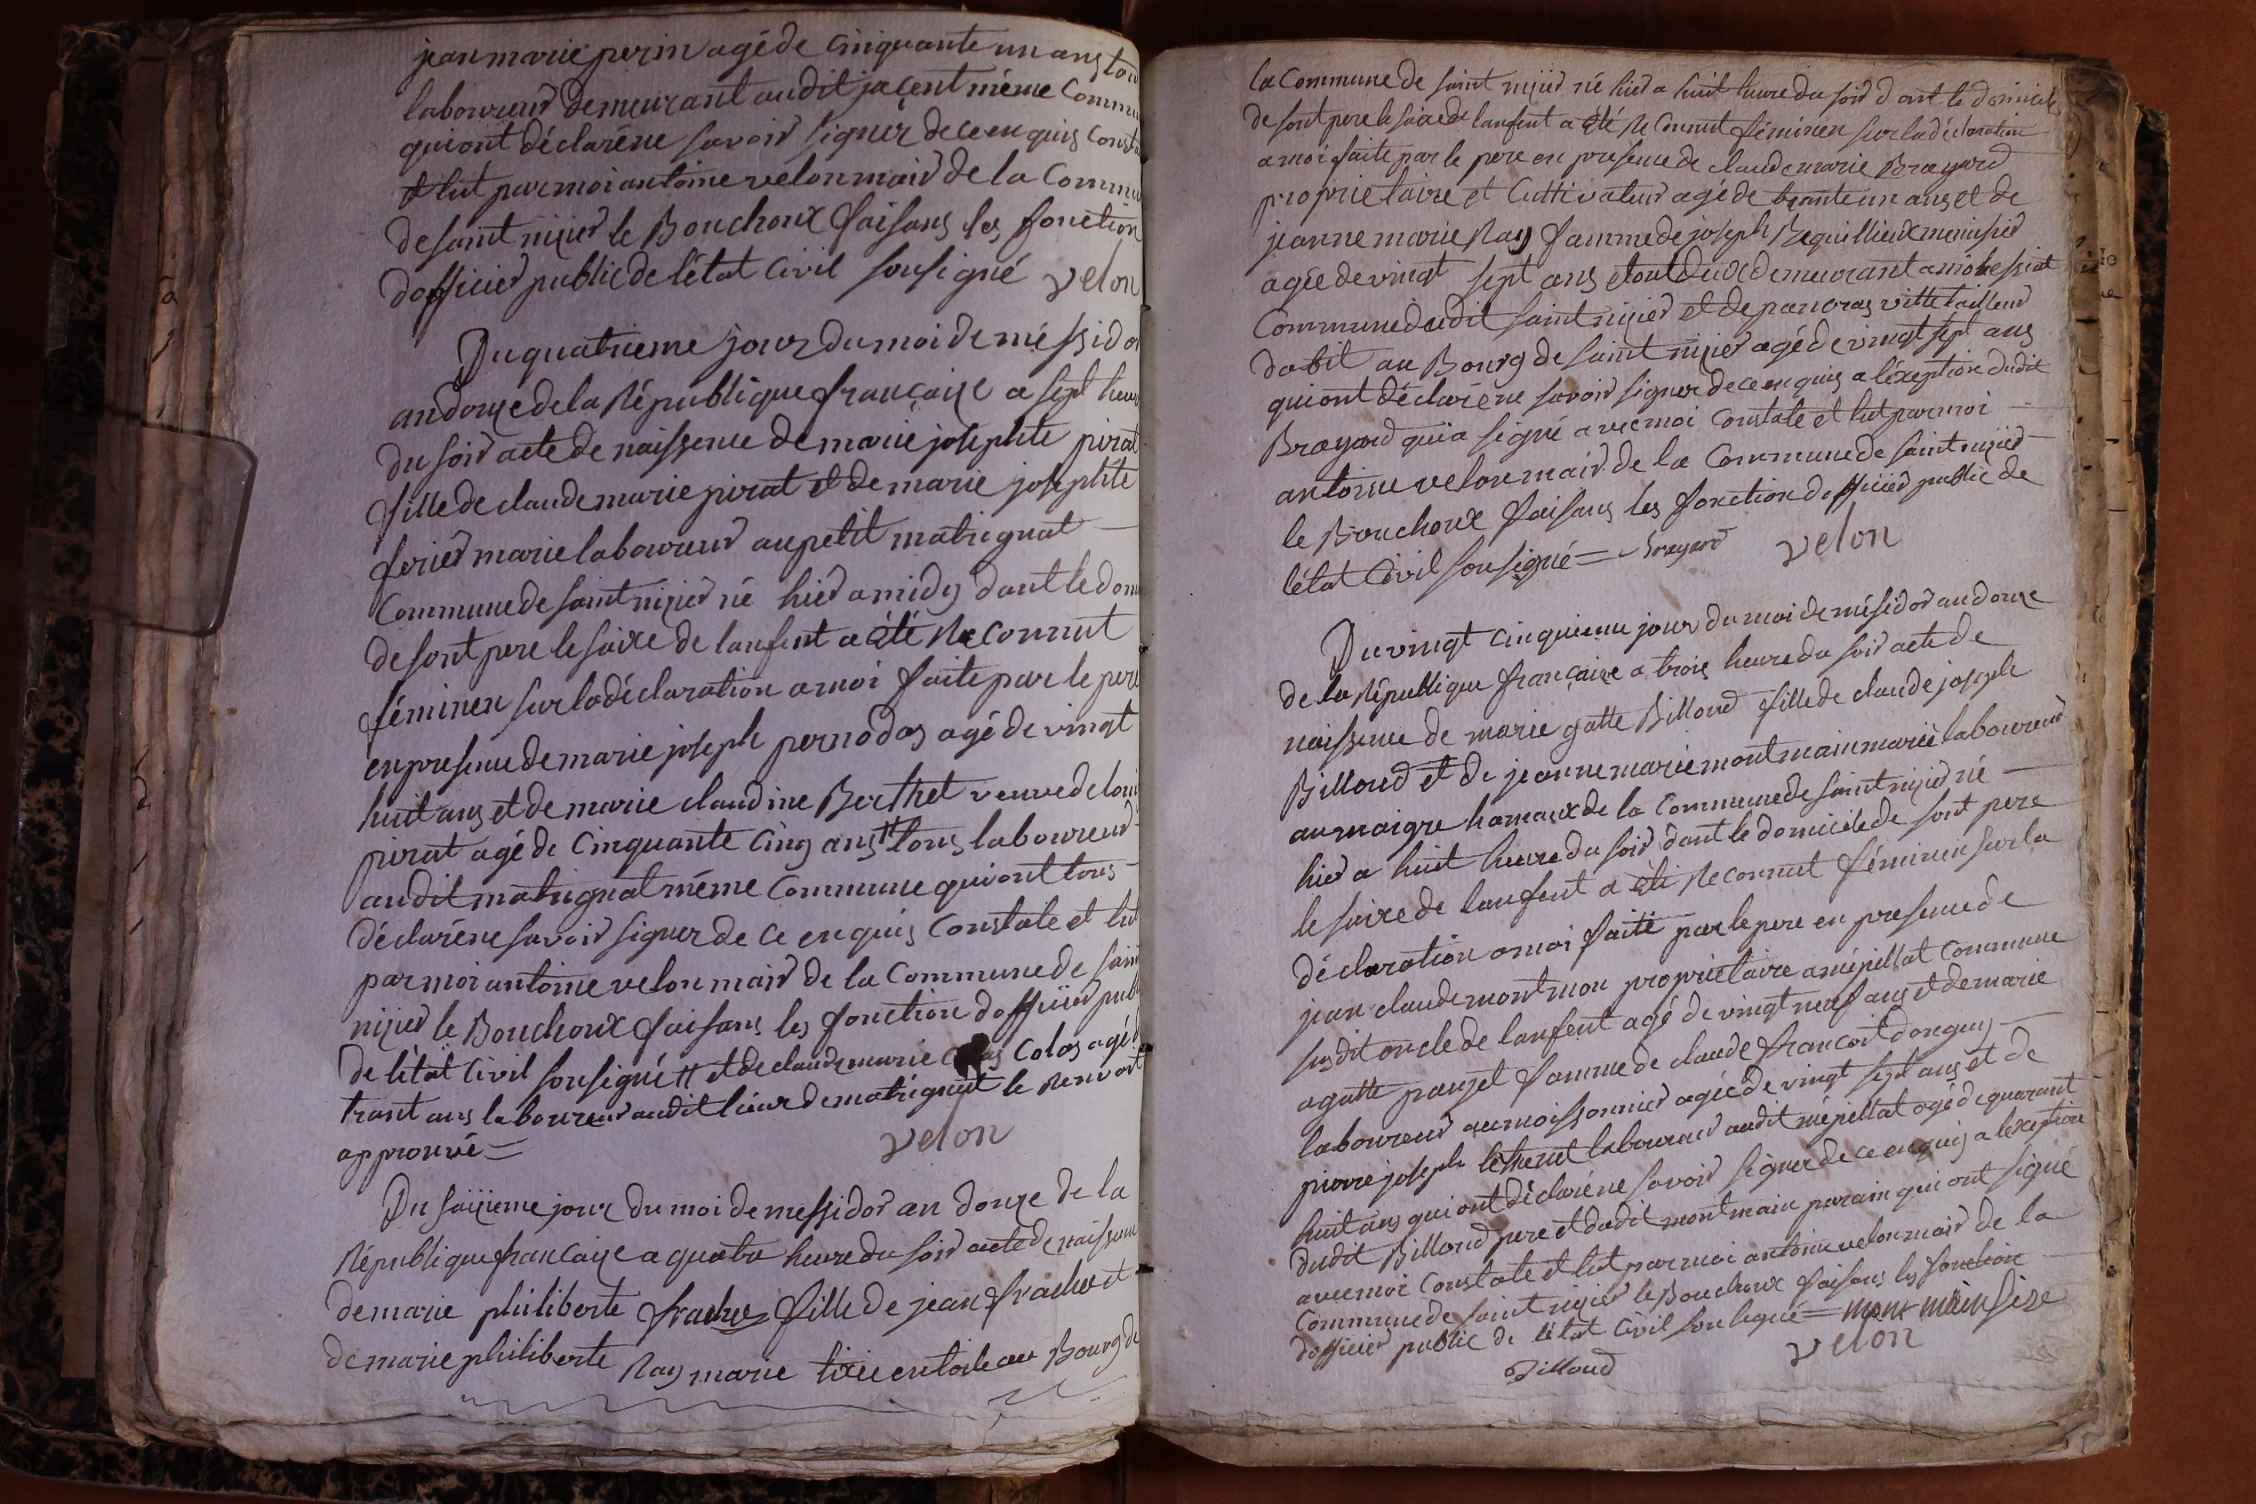 jean marie perin agé de cinquante un ans tou
laboureur demeurant audit jaçent même Commu
qui ont déclaré ne savoir signer de ce enquis Consta
et lut par moi antoine velon mair de la Commu
de saint nizier le Bouchoux faisans les fonction
dofficier public de létat Civil sousigné velon
Du quatrieme jour du moi de méssido
an douze de la République française a sept heur
du soir acte de naissence de marie josephte pirat
fille de claude marie pirat et de marie josephte
ferier marie laboureur au petit matrignat
Commune de saint nizier né hier a midy dant le dom
de sont pere le saixe de lanfent a été Reconnut
féminen sur la déclaration a moi faite par le pere
en presence de marie joseph pernodas agé de vingt
huit ans et de marie claudine Berthet veuve de loui
pirat agé de Cinquante Cinq ans tous laboureur
audit matrignat même Commune qui ont tous
déclaré ne savoir signer de ce enquis Constate et lut
par moi antoine velon mair de la Commune de sain
nizier le Bouchoux faisans les fonction dofficier publ
de létat Civil sousigné et de claude marie Colas agé
trant ans laboureur audit lieux de matrignat le Renvoit
approuvé =
velon
Du saizieme jour du moi de messidor an douze de la
République française a quatre heure du soir acte de naissence
de marie philiberte frache fille de jean frachet et
de marie philiberte Ray marie tixie en toile au Bourg de
la Commune de saint nizier né hier a huit heure du soir dant le domicile
de sont pere le saixe de lanfent a été Reconnut féminen sur la déclaration
a moi faite par le pere en presence de claude marie Brayard
proprietaire et Cultivateur agé de trante un ans et de
jeanne marie Ray famme de joseph Requillieux menuisier
agée de vingt sept ans et out deux demeurant a
Commune dudit saint nizier et de pancras vitte tailleur
dabit au Bourg de saint nizier agé de vingt sept ans
qui ont déclaré ne savoir signer de ce enquis a léxeption dudit
Brayard qui a signé avec moi Constate et lut par moi
antoine velon mair de la Commune de saint nizier
le Bouchoux faisans les fonction dofficier public de
létat Civil sousigné = Brayard velon
Du vingt cinquieme jour du moi de mésidor an douze
de la République française a trois heure du soir acte de
naissence de marie gatte Billoud fille de claude joseph
Billoud et de jeanne marie montmain marié laboureur
au maigre hamaux de la Commune de saint nizier né
hier a huit heure du soir dant le domicile de sont pere
le saixe de lanfent a été Reconnut féminen sur la
déclaration a moi faite par le pere en presence de
jean claude montmon proprietaire a mépillat Commune
susdit oncle de lanfent agé de vingt neuf ans et de marie
agatte pauget famme de claude francoit donguy
laboureur au moissonnier agée de vingt sept ans et de
pierre joseph laboureur audit mépillat agé de quarant
huit ans qui ont déclaré ne savoir signer de ce enquis a léxeption
dudit Billoud pere et dudit montmain parain qui ont signé
avec moi Constate et lut par moi antoine velon mair de la
Commune de saint nizier le Bouchoux faisans les fonction
dofficier public de létat Civil sousigné = mont main
Billoud velon